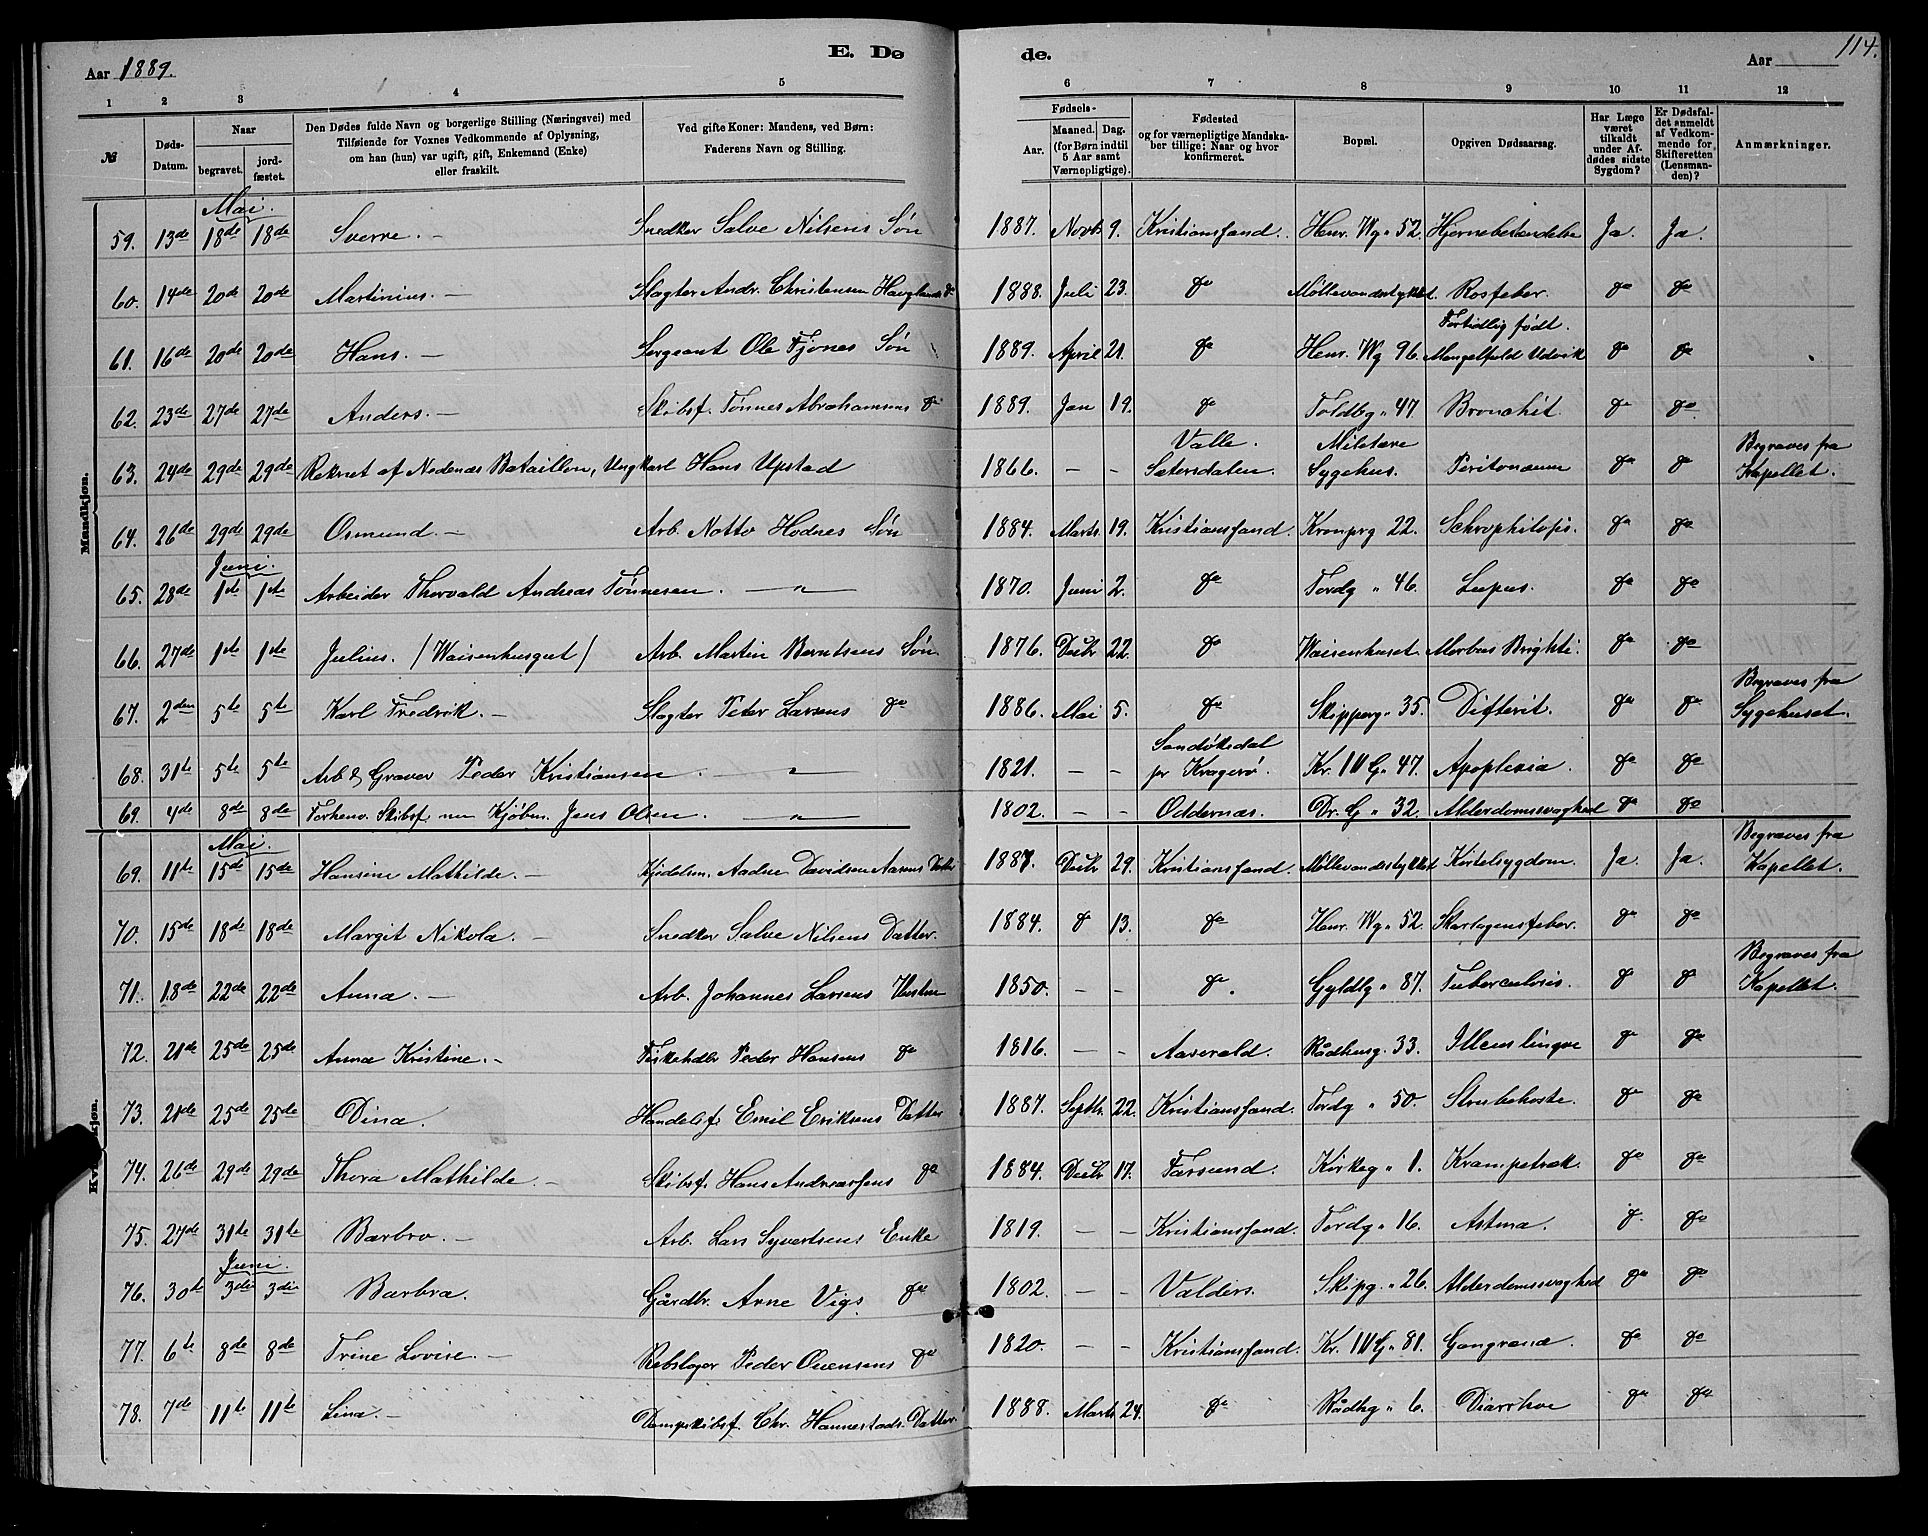 E. Dø de.
114.
Aar 1889. Aar
1 2 3 4 5 6 7 8 9 10 11 12
№ Døds-Datum. Naar begravet. jordfæstet. Den Dødes fulde Navn og borgerlige Stilling (Næringsvei) med Tilføiende for Voxnes Vedkommende af Oplysning, om han (hun) var ugift, gift, Enkemand (Enke) eller fraskilt. Ved gifte Koner: Mandens, ved Børn: Faderens Navn og Stilling. Fødsels- Aar. Maaned. Dag. (for Børn indtil 5 Aar samt Værnepligtige). Fødested og for værnepligtige Mandskaber tillige: Naar og hvor konfirmeret. Bopæl. Opgiven Dødsaarsag. Har Læge været tilkaldt under Afdødes sidste Sygdom? Er Dødsfaldet anmeldt af Vedkommende for Skifteretten (Lensmanden)? Anmærkninger.
Mandkjøn.
Mai.
59. 13de 18de 18de Sverre. – Snedker Salve Nilsens Søn 1887. Novb 9. Kristiansand. Henr. Wg " 52. Hjernebetændelse Ja. Ja.
60. 14de 20de 20de Martinius. – Slagter Andr. Christensen Hauglands do 1888. Juli 23. do Møllevandsstykket. Rosfeber. do do
61. 16de 20de 20de Hans. – Sergeant Ole Fjones Søn 1889. April 21. do Henr. Wg 96. Fortidlig født. Mangelfuld Udvik do do
62. 23de 27de 27de Anders. – Skibsf. Tønnes Abrahamsens do 1889. Jan 19. do Toldbg " 47. Bronchit. do do
63. 24de 29de 29de Rekrut af Nedenæs Bataillon, Ungkarl Hans Upstad 1866. – – Valle. Sætersdalen. Militære Sygehus. do do Begraves fra Kapellet.
64. 26de 29de 29de Osmund. – Arb. Notto Hodnes Søn 1884. Marts 19. Kristiansand. Kronprg 22. do do
Juni.
65. 28de 1ste 1ste Arbeider Thorvald Andreas Tønnesen. – " – 1870. Juni 2. do Tordg " 46. Lupus. do do
66. 27de 1ste 1ste Julius. (Waisenhusgut) Arb. Martin Berntsens Søn 1876. Decbr 22. do Waisenhuset Morbus Brighti. do do
67. 2den 5te 5te Karl Fredrik. – Slagter Peter Larsens do 1886. Mai 5. do Skipperg " 35. Difterit. do do Begraves fra Sygehuset.
68. 31te 5te 5te Arb & Graver Peder Kristiansen. – " – 1821. – – Sandøkedal pr Kragerø. Kr. IV G " 47. Apoplexia. do do
69. 4de 8de 8de Forhenv. Skibsf. nu Kjøbm. Jens Olsen. – " – 1802. – – Oddernæs. Dr. G " 32. Alderdomssvaghed do do
Kvindekjøn.
Mai.
69. 11te 15de 15de Hansine Mathilde. – Kjedelsm. Aadne Davidsen Aasens Datter 1887. Decbr 29. Kristiansand. Møllevandsstykket Kirtelsygdom. Ja. Ja. Begraves fra Kapellet.
70. 15de 18de 18de Margit Nikola. – Snedker Salve Nilsens Datter. 1884. do 13. do Henr. Wg " 52. Skarlagensfeber. do do
71. 18de 22de 22de Anna. – Arb. Johannes Larsens Hustru 1850. – – do. Gyldlg " 87. Tuberculosis. do do Begraves fra Kapellet.
72. 21de 25de 25de Anna Kristine. – Fiskehdlr Peder Hansens do 1816. – – Aaserald. Rådhusg. 33. do do
73. 21de 25de 25de Dina. Handelsf. Emil Eriksens Datter 1887. Septbr. 22. Kristiansand. Tordg " 50. Strubehoste. do do
74. 26de 29de 29de Thora Mathilde. – Skibsf. Hans Andreassens do 1884. Decbr 17. Farsund. Kirkeg " 1. Krampetræk. do do
75. 27de 31te 31te Barbro. – Arb. Lars Syvertsens Enke 1819. – – Kristiansand. Tordg " 16. Astma. do. do
Juni.
76. 30te 3die 3die Barbra. Gårdbr. Arne Vigs do 1802. – – Valders. Skipg. " 26. Alderdomssvaghed do do
77. 6te 8de 8de Trine Lovise. – Rebslager Peder Ouensens do 1820. – – Kristiansand. Kr. IV G " 81. Gangræna. do do
78. 7de 11te 11te Lina. – Dampskibsf. Chr. Hannestads Datter 1888. Marts 24. do Rådhg " 6. Diarrhoe. do do